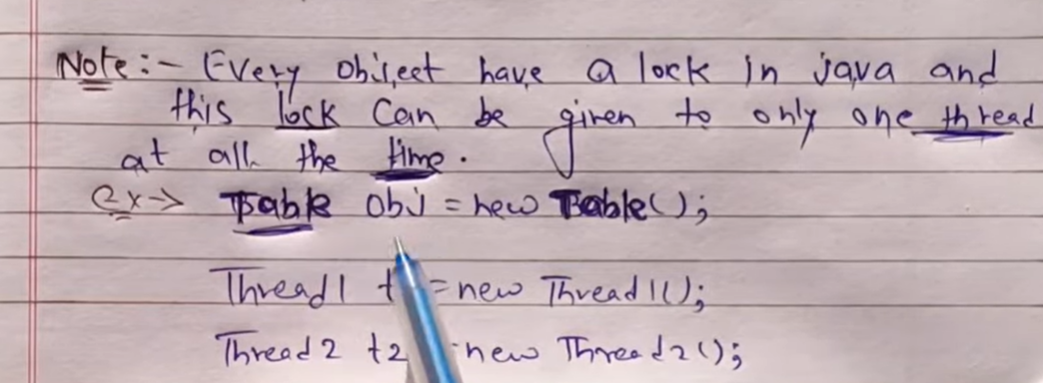 Note:- Every object have a lock in java and
this lock can be given to only one thread
at all the time.
ex→ Table obj = new Table();
Thread1 t = new Thread1();
Thread2 t2 = new Thread2();